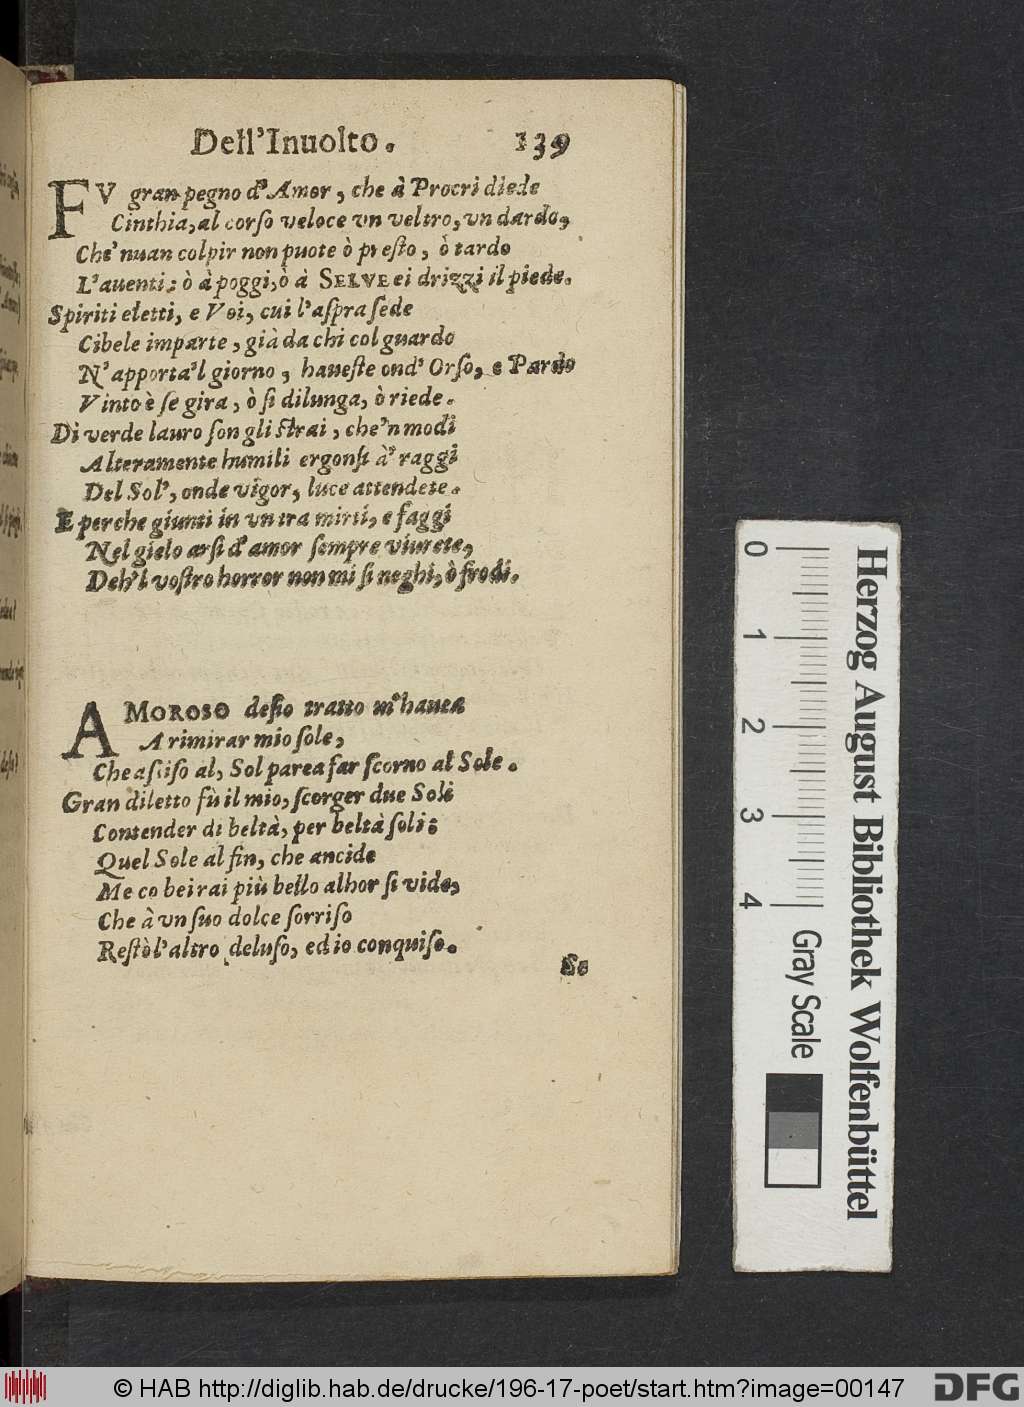 Dell'Inuolto. 139
FV gran pegno d'Amor, che à Procri diede
Cinthia, al corſo veloce vn veltro, vn dardo,
Che'nuan colpir non puote ò preſto, ò tardo
L'auenti: ò à poggi, ò à SELVE ei drizzi il piede.
Spiriti eletti, e Voi, cui l'aſpra ſede
Cibele imparte, già da chi col guardo
N'apporta'l giorno, haueſte ond'Orſo, e Pardo
Vinto è ſe gira, ò ſi dilunga, ò riede.
Di verde lauro ſon gli ſtrai, che'n modi
Alteramente humili ergonſi à' raggi
Del Sol', onde vigor, luce attendete.
E perche giunti in vn tra mirti, e faggi
Nel gielo arſi d'amor ſempre viurete,
Deh'l voſtro horror non mi ſi neghi, ò frodi.
AMOROSO deſio tratto m'hauea
A rimirar mio ſole,
Che aſsiſo al, Sol parea far ſcorno al Sole.
Gran diletto fù il mio, ſcorger due Soli
Contender di beltà, per beltà ſoli:
Quel Sole al fin, che ancide
Me co bei rai più bello alhor ſi vide,
Che à vn ſuo dolce ſorriſo
Reſtò l'altro deluſo, ed io conquiſo.
Se
0 1 2 3 4
Gray Scale
Herzog August Bibliothek Wolfenbüttel
© HAB http://diglib.hab.de/drucke/196-17-poet/start.htm?image=00147
DFG